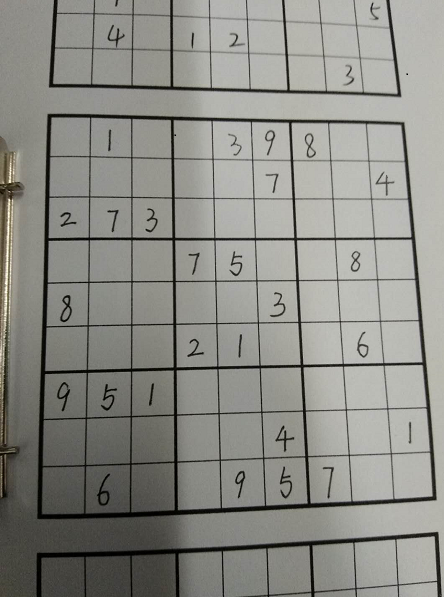 5
4 1 2
3
1 3 9 8
7 4
2 7 3
7 5 8
8 3
2 1 6
9 5 1
4 1
6 9 5 7